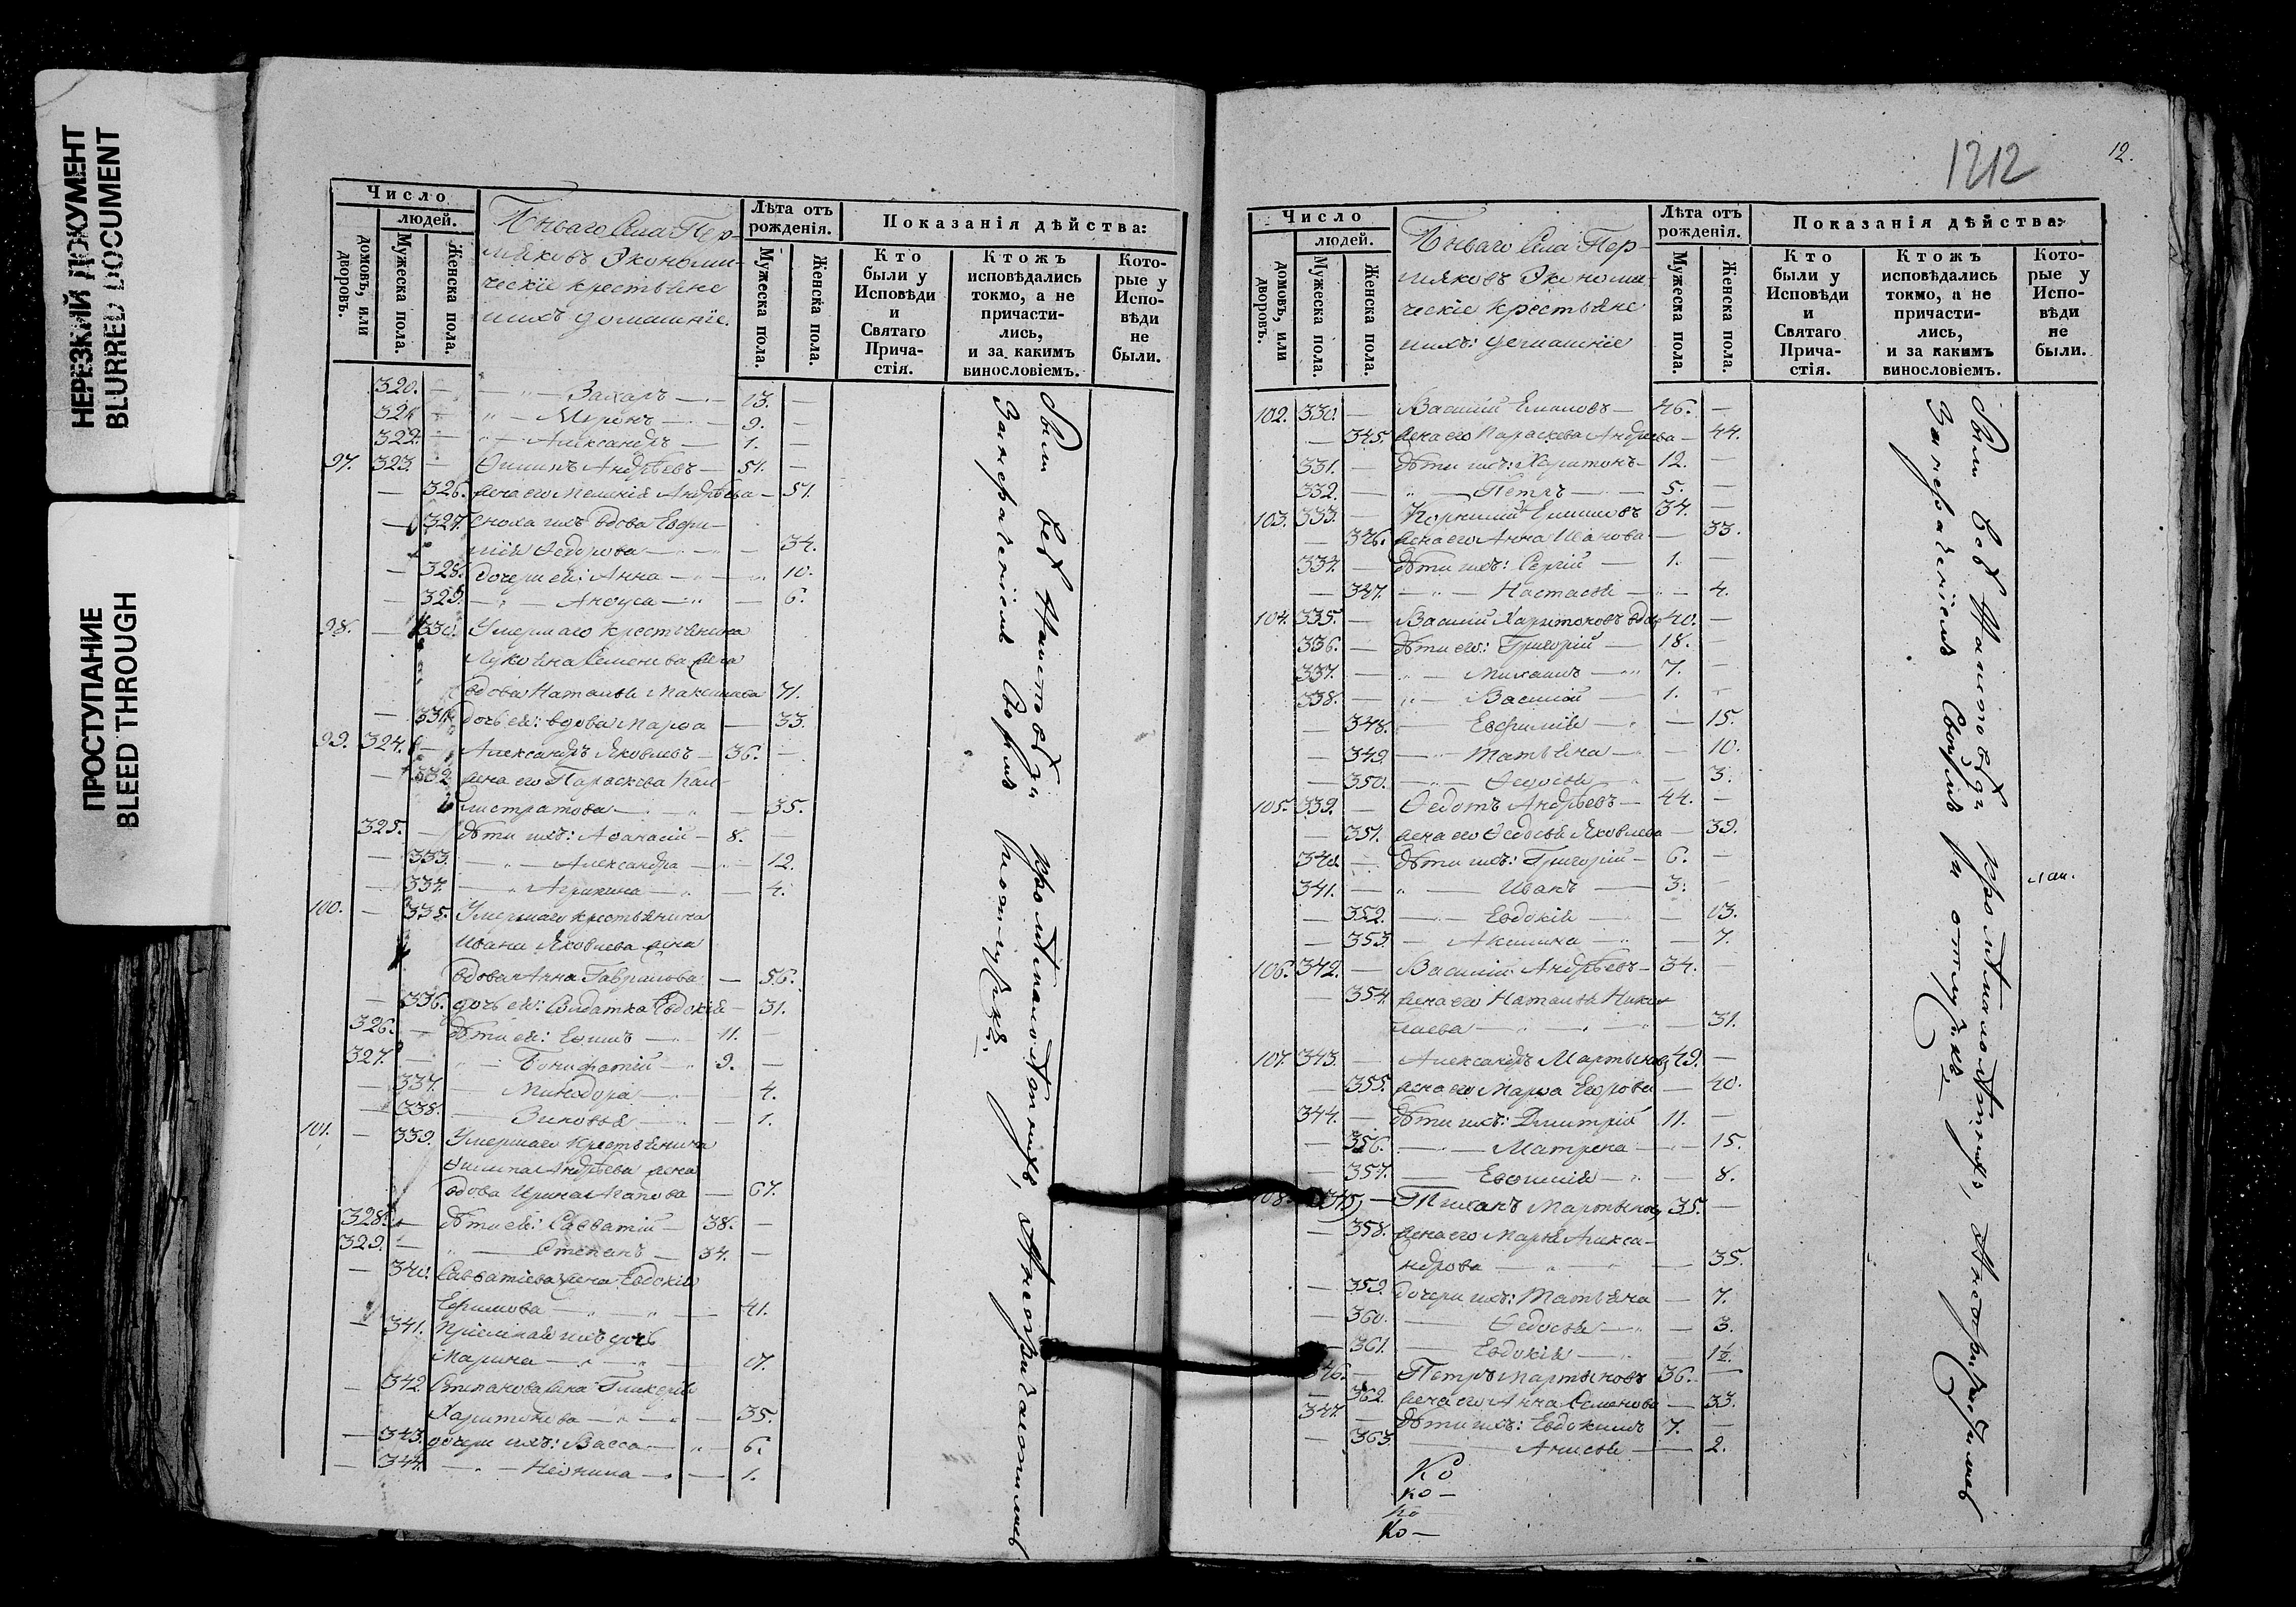 НЕРЕЗКИЙ ДОКУМЕНТ
BLURRED DOCUMENT
ПРОСТУПАНИЕ
BLEED THROUGH
Число
людей.
домовъ, или дворовъ.
Мужеска пола.
Женска пола.
Села Пер-
мяковъ Экономи-
ческіе крестьяне
ихъ домашніе.
Лѣта отъ рожденія.
Мужеска пола.
Женска пола.
Показанія дѣйства:
Кто были у Исповѣди и Святаго Причастія.
Ктожъ исповѣдались токмо, а не причастились, и за какимъ винословіемъ.
Которые у Исповѣди не были.
320. — " — Захаръ — 13. —
321. — " — Миронъ — 9. —
322. — " — Александръ — 1. —
97. 323. — Филипъ Андрѣевъ — 51. —
— 326. жена его Меланія Андрѣева — 51.
— 327. сноха ихъ вдова Евфи-
мія Ѳедорова — 34.
— 328. дочери ей: Анна — 10.
— 329. — " — Анфуса — 6.
98. — 330. Умершаго крестьянина
Лукояна Семенова жена
вдова Наталья Максимова 71.
— 331. дочь ей: вдова Марфа — 33.
99. 324. — Александръ Яковлевъ — 36. —
— 332. жена его Параскева Кал-
листратова — 35.
325. — дѣти ихъ: Аѳанасій — 8. —
— 333. — " — Александра — 12.
— 334. — " Агрипина — 4.
100. — 335. Умершаго крестьянина
Ивана Яковлева жена
вдова Анна Гаврилова — 56.
— 336. дочь ей: Солдатка Евдокія — 31.
326. — дѣти ей: Ефимъ — 11. —
327. — " — Бонифатій — 9. —
— 337. — Минодора — 4.
— 338. — Зиновья — 1.
101. — 339. Умершаго крестьянина
Филипа Андрѣева жена
вдова Ирина — 67.
328. — дѣти ей: Савватій — 38. —
329. — " — Степанъ — 34. —
— 340. Савватіева жена Евдокія
Ефимова — 41.
— 341. Пріемная ихъ дочь
Марина — 17.
— 342. Степанова жена Гликерія
Харитонова — 35.
— 343. дочери ихъ: Васса — 6.
— 344. — " — Неонила — 1.
1212
12.
Число
людей.
домовъ, или дворовъ.
Мужеска пола.
Женска пола.
Села Пер-
мяковъ Экономи-
ческіе крестьяне
ихъ: домашніе
Лѣта отъ рожденія.
Мужеска пола.
Женска пола.
Показанія дѣйства:
Кто были у Исповѣди и Святаго Причастія.
Ктожъ исповѣдались токмо, а не причастились, и за какимъ винословіемъ.
Которые у Исповѣди не были.
102. 330. — Василій — 46. —
— 345. жена его Параскева Андрѣева — 44.
331. — дѣти ихъ: Харитонъ — 12. —
332. — " — Петръ — 5. —
103. 333. — Корнилій 34. —
— 346. жена его Анна Иванова — 33.
334. — дѣти ихъ: Сергій — 1. —
— 347. — " — Настасья — 4.
104. 335. — Василій Харитоновъ вдов. 40. —
336. — дѣти его: Григорій — 18. —
337. — " — Михаилъ — 7. —
338. — " — Василій — 1. —
— 348. — Евфимія — 15.
— 349. — " — Татьяна — 10.
— 350. — " — Ѳедосья — 3.
105. 339. — Ѳедотъ Андрѣевъ — 44. —
— 351. жена его Ѳедосья Яковлева — 39.
340. — дѣти ихъ: Григорій — 6. —
341. — " — Иванъ — 3. —
— 352. — Евдокія — 13.
— 353. — Акилина — 7.
106. 342. — Василій Андрѣевъ — 34. —
— 354. жена его Наталья Нико-
лаева — 31.
107. 343. — Александръ Мартыновъ 49. —
— 355. жена его Марфа Егорова — 40.
344. — дѣти ихъ: Димитрій 11. —
— 356. — Матрена — 15.
— 357. — Евфимія — 8.
108. 345. — Тихонъ Мартыновъ 35. —
— 358. жена его Марья Алекса-
ндрова — 35.
— 359. дочери ихъ: Татьяна — 7.
— 360. — Ѳедосья — 3.
— 361. — Евдокія — 1½.
346. — Петръ Мартыновъ 36. —
— 362. жена его Анна Семенова — 33.
347. — дѣти ихъ: Евдокимъ 7. —
— 363. — Анисья — 2.
Ко
ко —
ко
Ко —